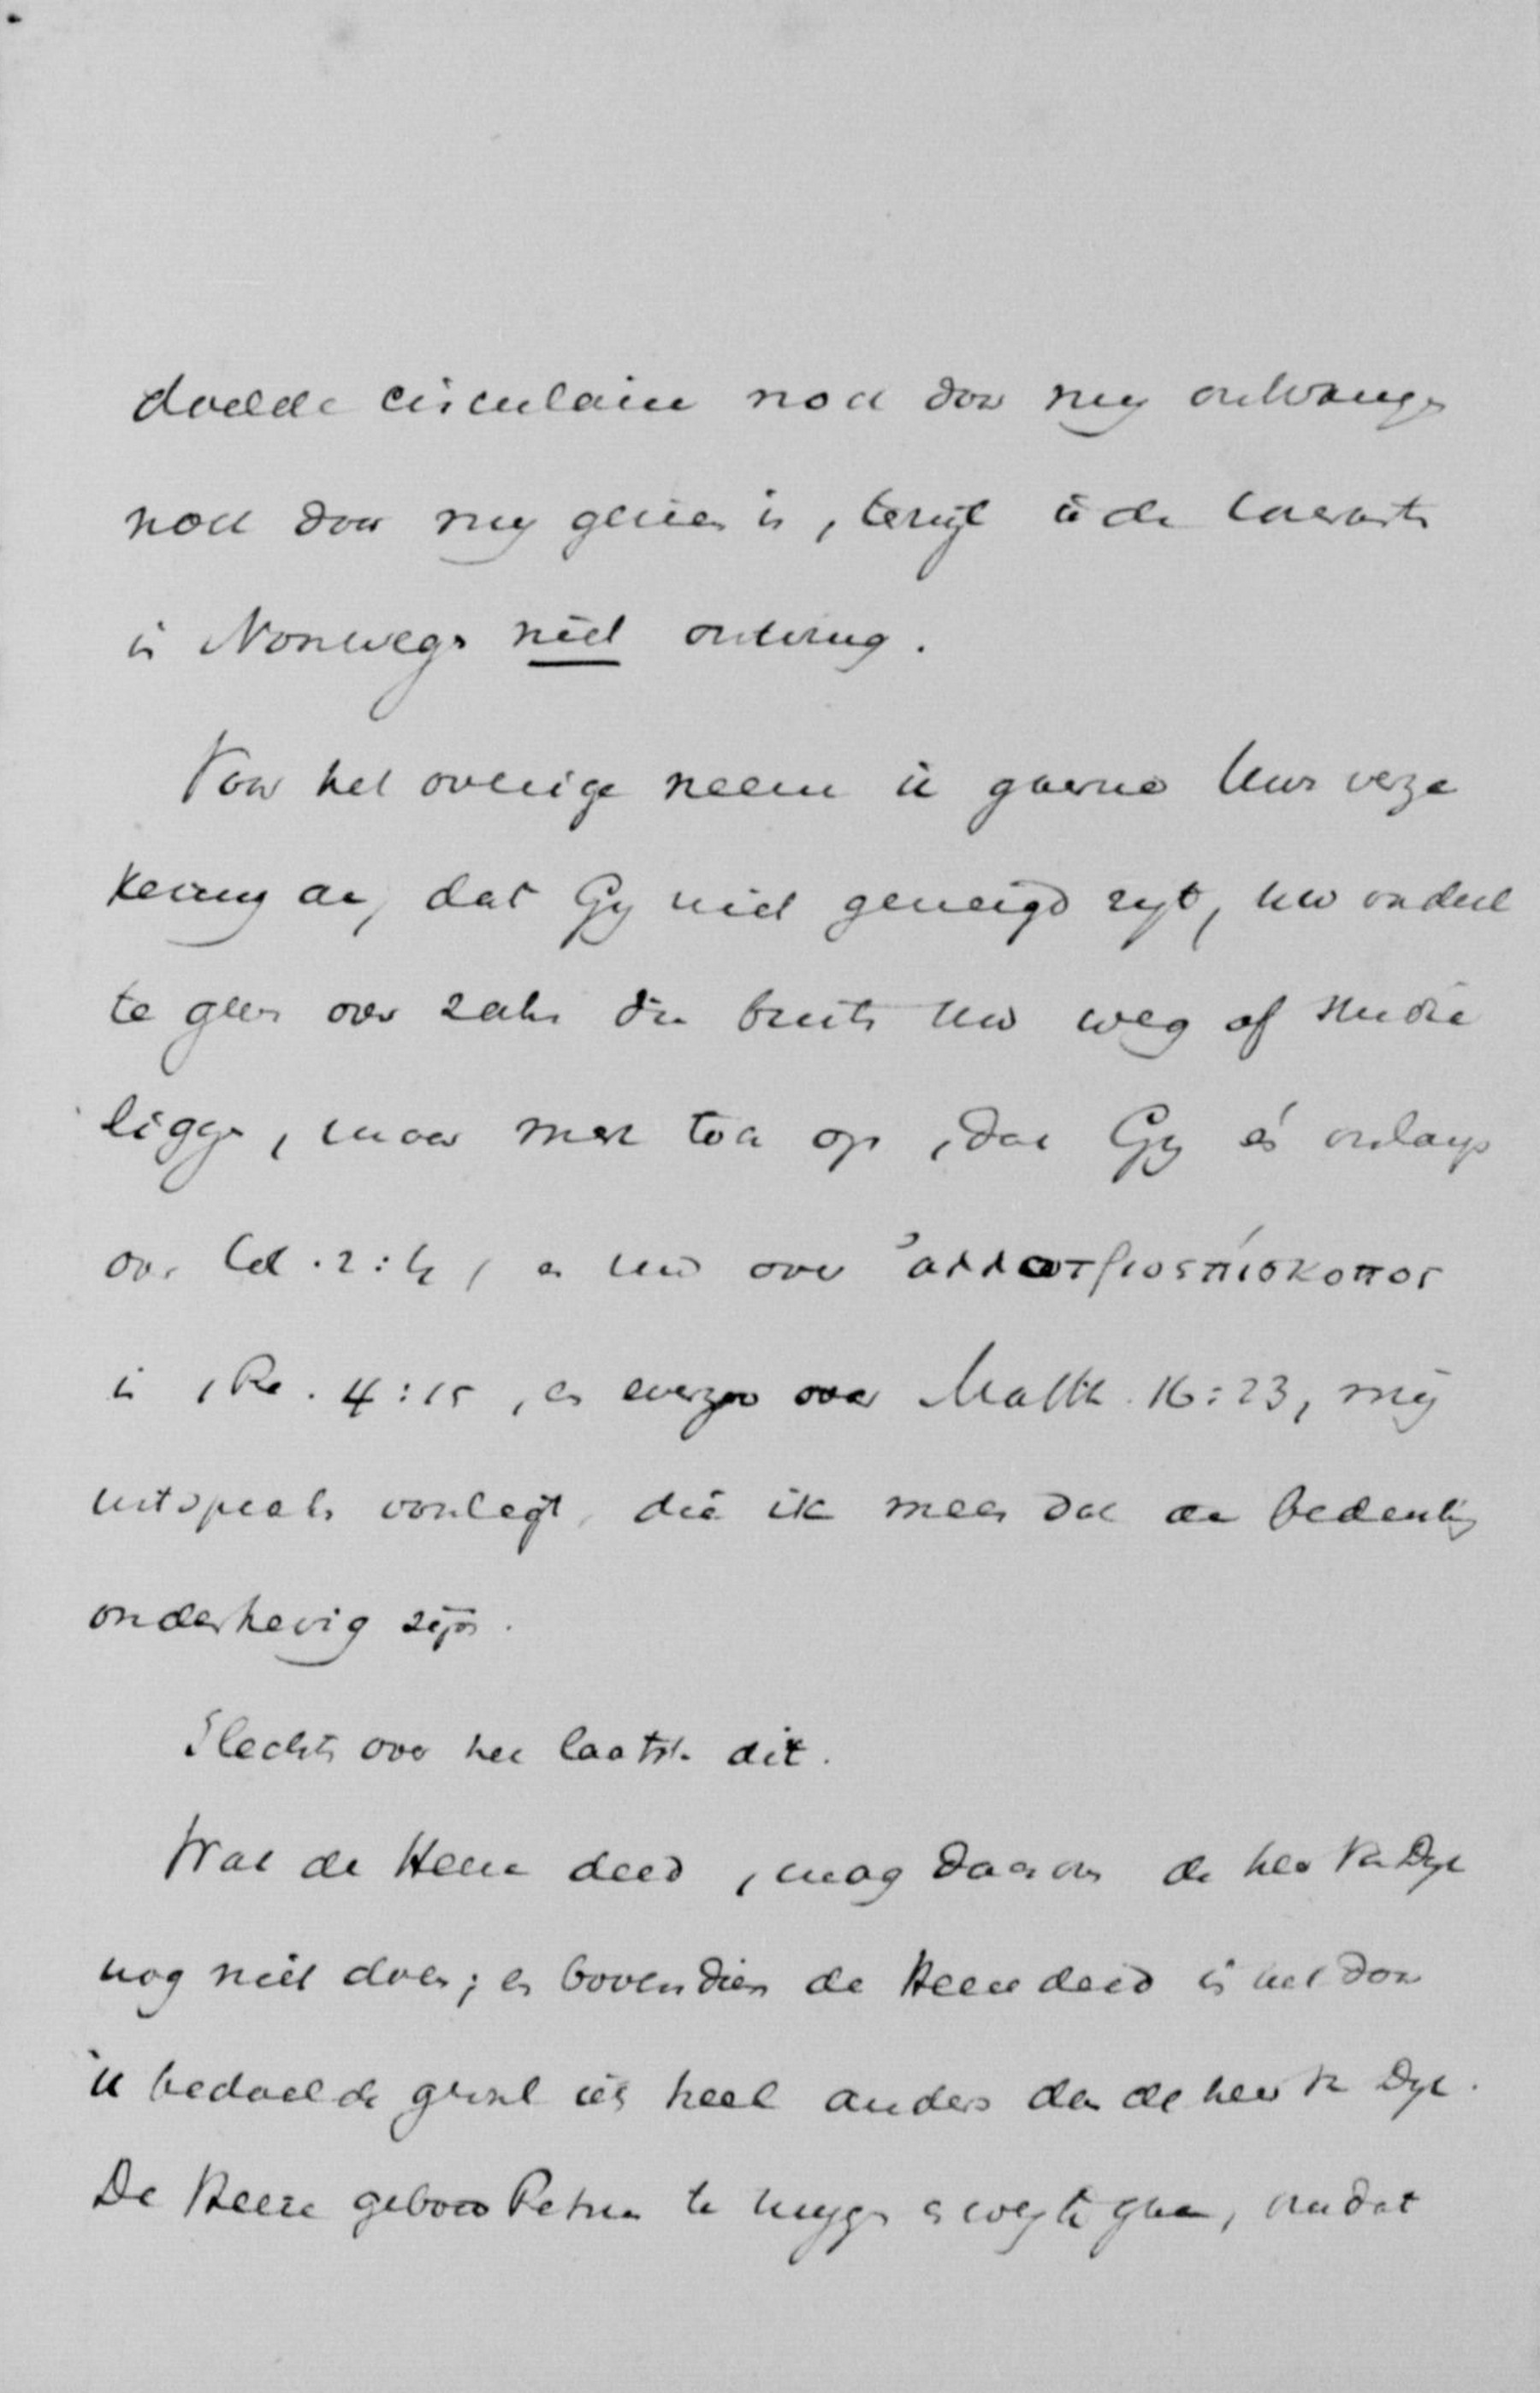 doelde circulaire noch door my ontvangen
noch door my gelezen is, terwyl ik de couranten
in Norwegen niet ontving.
Voor het overige neem ik gaarne Uwe verze
kering aan, dat Gy niet geneigd zyt, uw oordeel
te geven over zaken die buiten Uw weg of studie
liggen, maar merk toch op, dat Gy én onlangs
over Col. 2:4, en nu over ἀλλοτριοεπίσκοπος
in 1 Pe. 4:15, en evenzoo over Matth. 16:23, mij
uitspraken voorlegt, die ik meen dat aan bedenking
onderhevig zijn.
Slechts over het laatste dit.
Wat de Heere deed, mag daarom de heer Van Dyk
nog niet doen; en bovendien de Heere deed in het door
U bedoelde geval iets heel anders dan de heer v. Dyk.
De Heere gebood Petrus te zwygen en weg te gaan, omdat